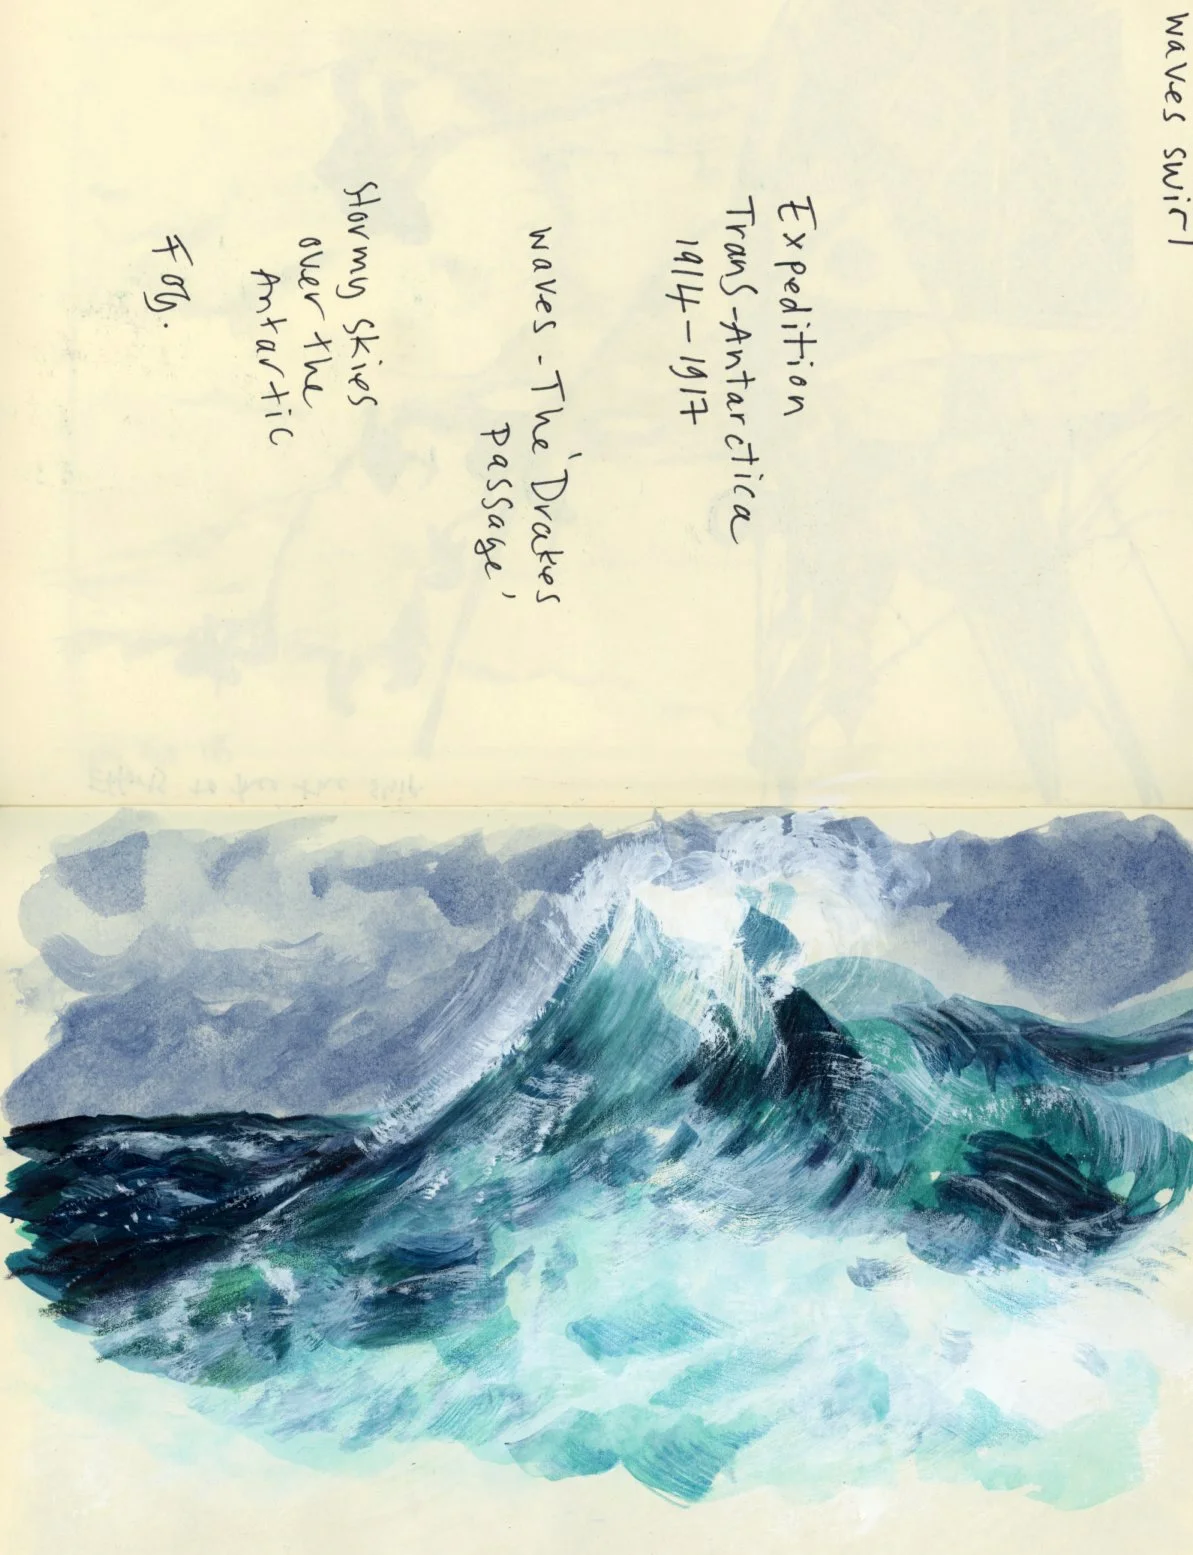 waves swirl
Expedition
Trans-Antarctica
1914-1917
waves - The 'Drakes
Passage'
Stormy skies
over the
Antartic
Fog.
Efforts to free the ship